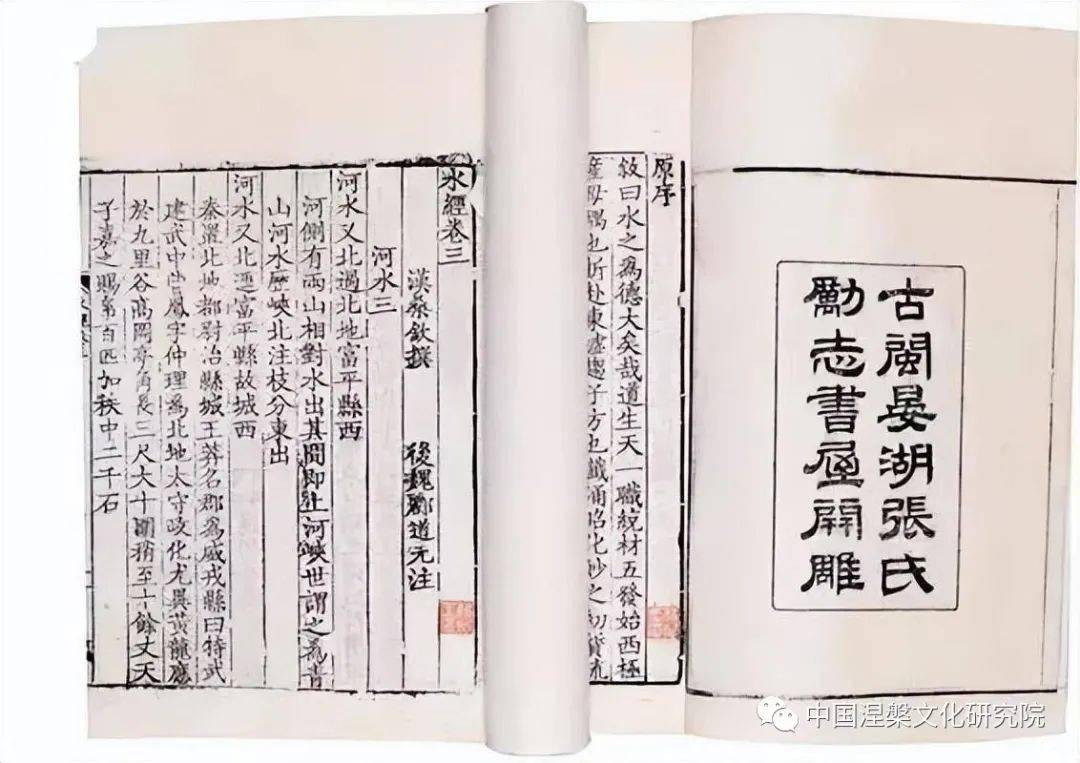 古閩晏湖張氏
勵志書屋開雕
原序
敘曰水之爲德大矣哉道生天一職統材五發始西極
母隅也折赴東墟子方也
水經卷三
漢桑欽撰 後魏酈道元注
河水三
河水又北過北地富平縣西
河側有兩山相對水出其間即上河峽世謂之爲青
山河水歷峽北注枝分東出
河水又北逕富平縣故城西
秦置北地都尉治縣城王莽名郡爲威戎縣曰特武
建武中曹鳳字仲理爲北地太守政化尤異黃龍應
於九里谷高岡亭角長三尺大十圍稍至十餘丈天
子嘉之賜帛百匹加秩中二千石
中国涅槃文化研究院